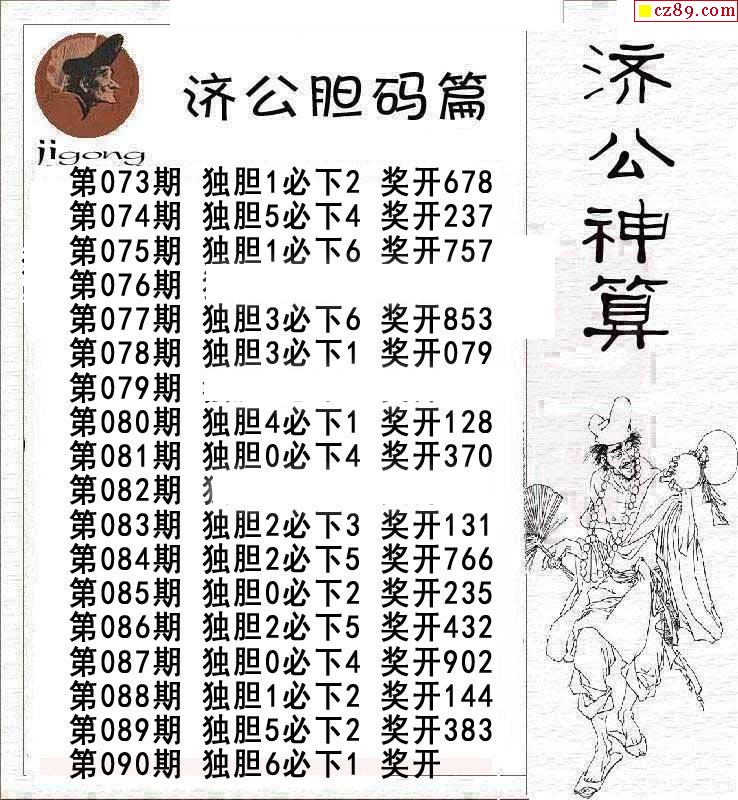 cz89.com
济公胆码篇
jigong
第073期 独胆1必下2 奖开678
第074期 独胆5必下4 奖开237
第075期 独胆1必下6 奖开757
第076期
第077期 独胆3必下6 奖开853
第078期 独胆3必下1 奖开079
第079期
第080期 独胆4必下1 奖开128
第081期 独胆0必下4 奖开370
第082期
第083期 独胆2必下3 奖开131
第084期 独胆2必下5 奖开766
第085期 独胆0必下2 奖开235
第086期 独胆2必下5 奖开432
第087期 独胆0必下4 奖开902
第088期 独胆1必下2 奖开144
第089期 独胆5必下2 奖开383
第090期 独胆6必下1 奖开
济公神算